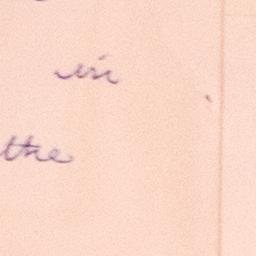 in
the